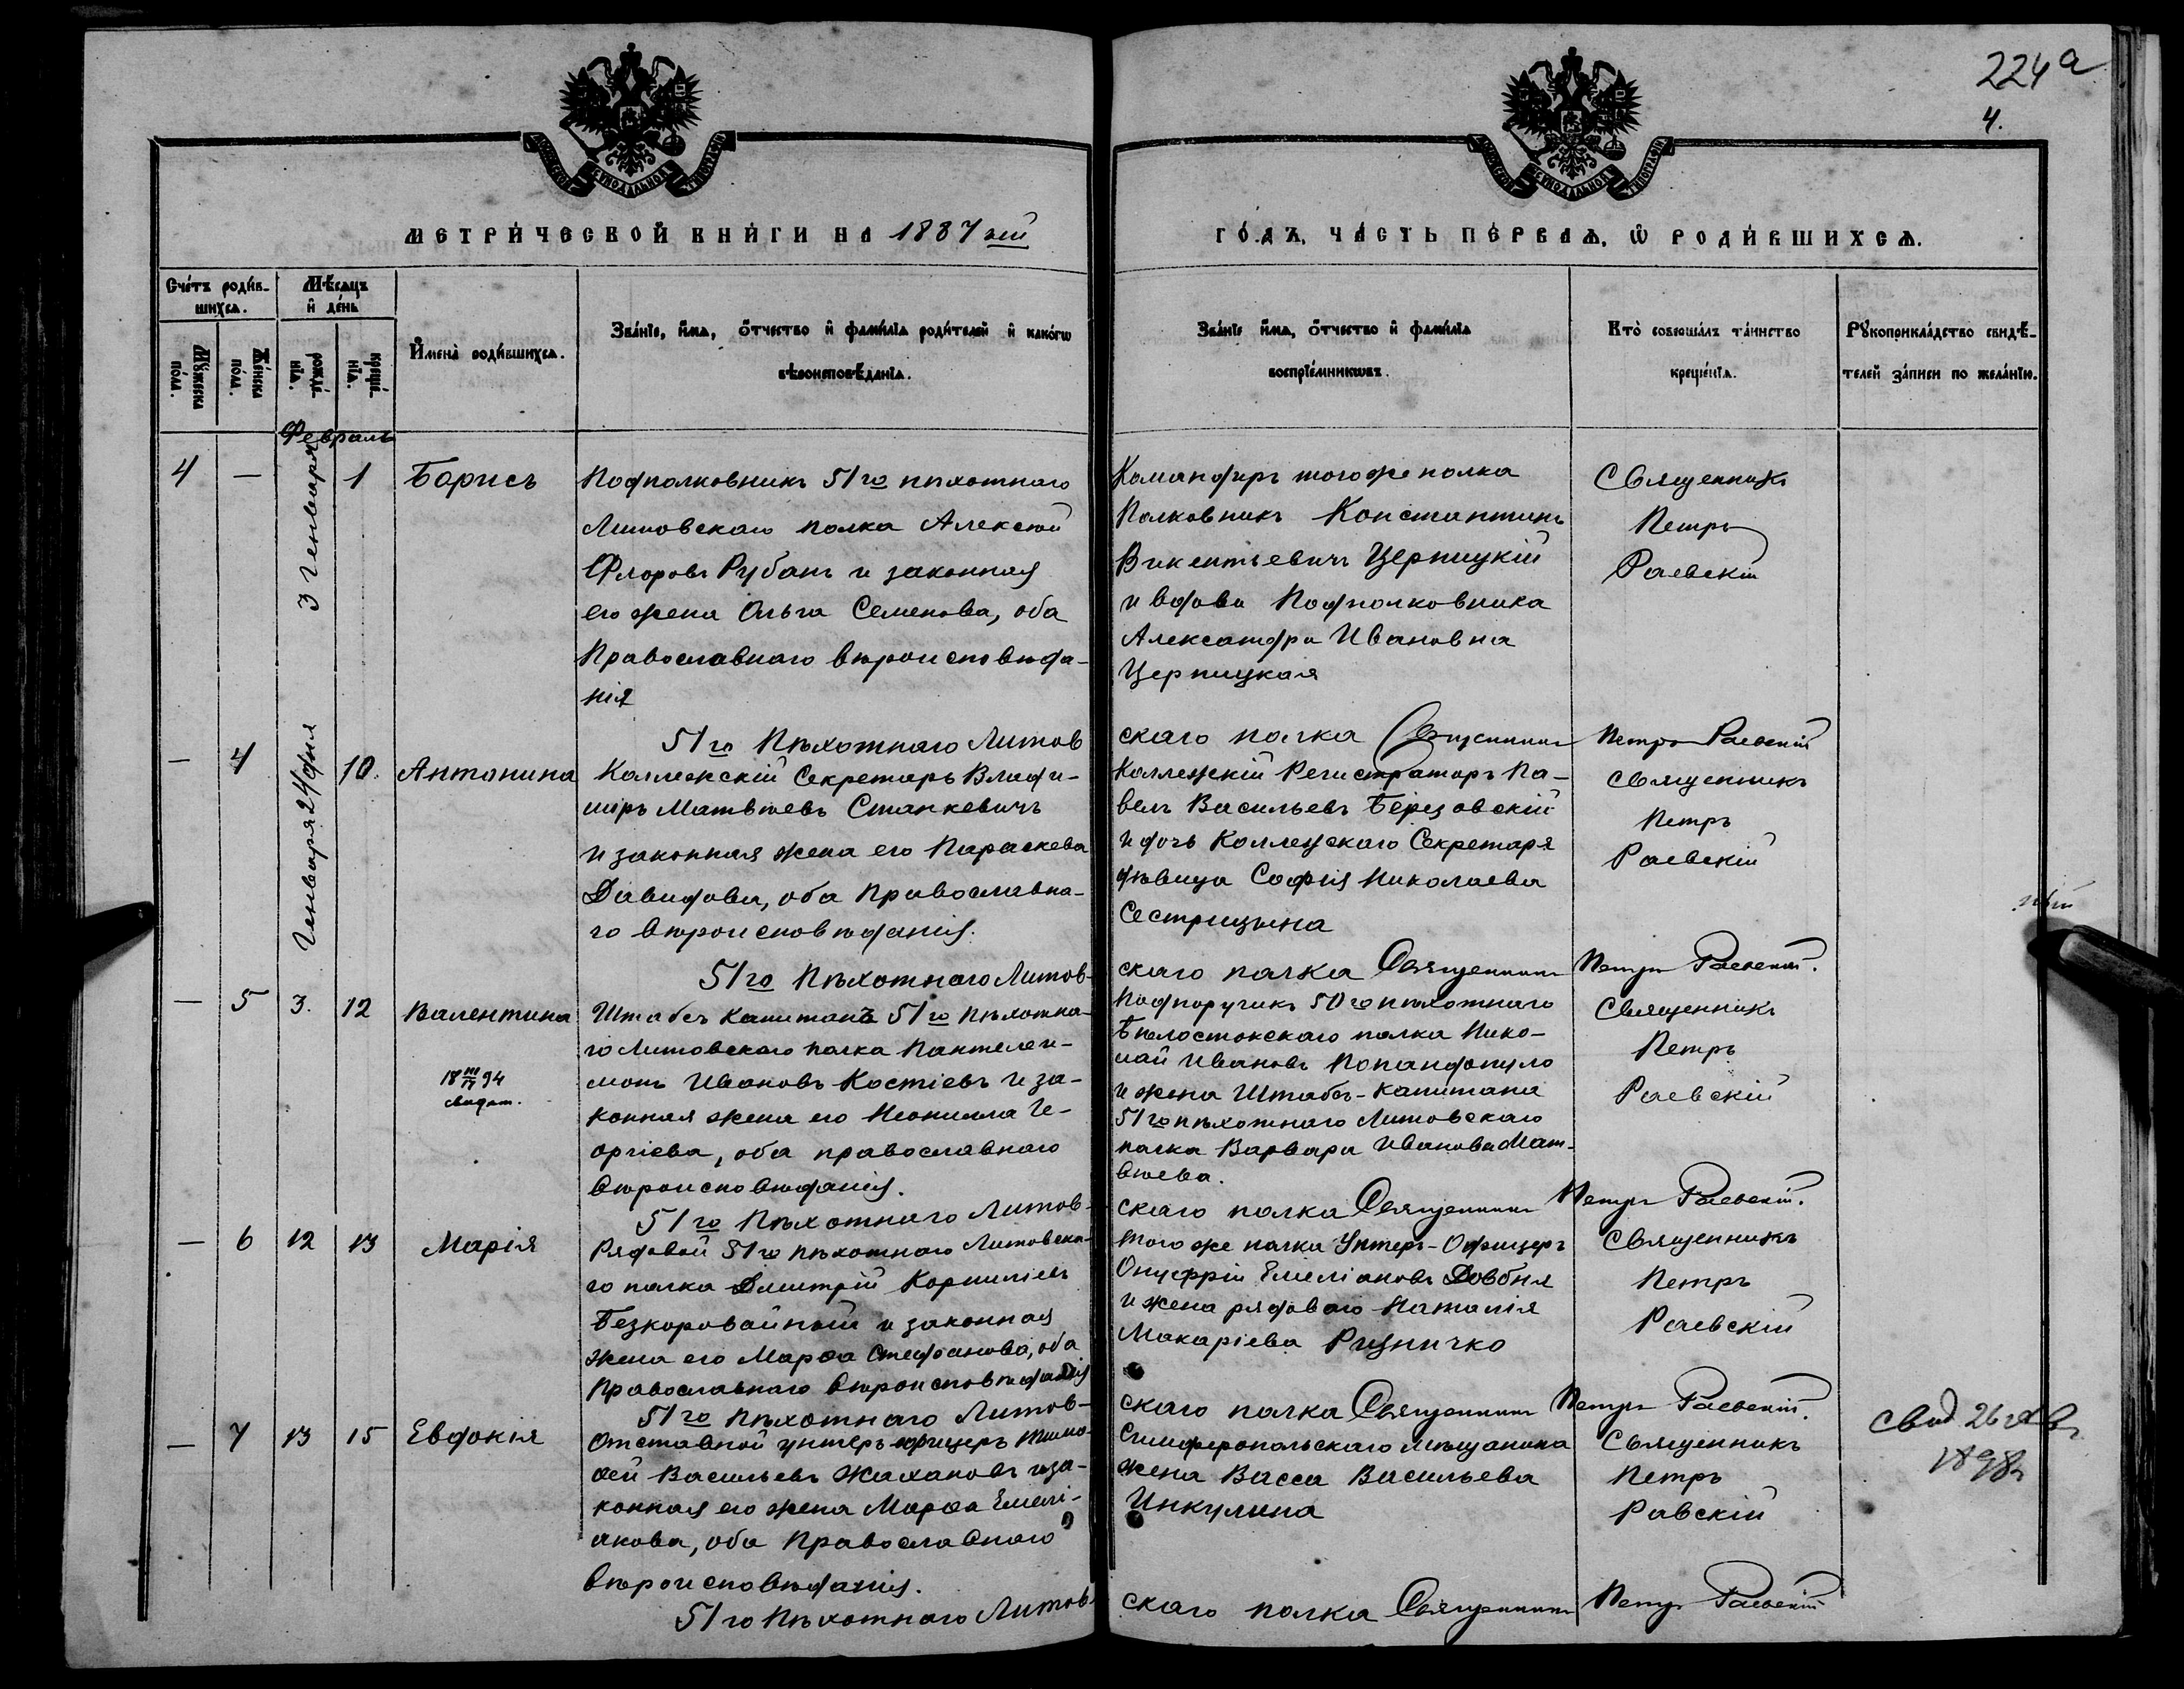 224а
4.
СѴНОДАЛЬНОЙ ТИПОГРАФІИ
СѴНОДАЛЬНОЙ ТИПОГРАФІИ
МЕТРИ́ЧЕСКОЙ КНИ́ГИ НА 1887 ой
ГО́ДЪ, ЧА́СТЬ ПЕ́РВАѦ, Ѡ РОДИ́ВШИХСѦ.
Сче́тъ роди́в-
шихсѧ.
Мѣ́сѧцъ
и҆ де́нь
Мꙋ́жеска по́ла.
Же́нска по́ла.
рожде́-нїѧ.
креще́-нїѧ.
И҆мена̀ роди́вшихсѧ.
Зва́нїе, и҆́мѧ, ѻ҆́тчество и҆ фамѝлїѧ роди́телей и҆ како́гѡ
вѣроисповѣ́данїѧ.
Зва́нїе и҆́мѧ, ѻ҆́тчество и҆ фамѝлїѧ
воспрїе́мникѡвъ.
Кто̀ соверша́лъ та́инство
креще́нїѧ.
Рꙋкоприкла́дство свидѣ́-
телей за́писи по жела́нїю.
Февраль
4 — 3 Генваря 1 Борисъ
Подполковникъ 51го пѣхотнаго
Литовскаго полка Алексѣй
Флоровъ Рубанъ и законная
его жена Ольга Семенова, оба
Православнаго вѣроисповѣда-
нія
Командиръ тогоже полка
Полковникъ Константинъ
Викентьевичъ Церпицкій
и вдова Подполковника
Александра Ивановна
Церпицкая
Священникъ
Петръ
Раевскій
51го Пѣхотнаго Литов
скаго полка Священникъ Петръ Раевскій
— 4 Генваря 24 дня 10. Антонина
Коллежскій Секретарь Влади-
миръ Матвѣевъ Станкевичъ
и законная жена его Параскева
Давидова, оба Православна-
го вѣроисповѣданія.
Коллежскій Регистраторъ Па-
велъ Васильевъ Березовскій
и дочь Коллежскаго Секретаря
дѣвица Софія Николаева
Сестрицына
Священникъ
Петръ
Раевскій
51го Пѣхотнаго Литов-
скаго полка Священникъ Петръ Раевскій.
— 5 3. 12 Валентина
18 III/IV 94
свидѣт.
Штабсъ Капитанъ 51го Пѣхотна-
го Литовскаго полка Пантелеи-
монъ Ивановъ Костіевъ и за-
конная жена его Неонилла Ге-
оргіева, оба православнаго
вѣроисповѣданія.
Подпоручикъ 50го пѣхотнаго
Бѣлостокскаго полка Нико-
лай Ивановъ Попандопуло
и жена Штабсъ-Капитана
51го пѣхотнаго Литовскаго
полка Варвара Иванова Мат-
вѣева.
Священникъ
Петръ
Раевскій
51го Пѣхотнаго Литов-
скаго полка Священникъ Петръ Раевскій.
— 6 12 13 Марія
Рядовой 51го пѣхотнаго Литовска-
го полка Димитрій Корниліевъ
Безкоровайный и законная
жена его Марѳа Стефанова, оба
Православнаго вѣроисповѣданія
Того же полка Унтеръ-Офицеръ
Онуфрій Емеліановъ Довбня
и жена рядоваго Наталія
Макаріева Ризничко
Священникъ
Петръ
Раевскій
51го Пѣхотнаго Литов-
скаго полка Священникъ Петръ Раевскій.
— 7 13 15 Евдокія
Отставной унтеръ-офицеръ Тимо-
ѳей Васильевъ Жахановъ и за-
конная его жена Марѳа Емелі-
анова, оба Православнаго
вѣроисповѣданія.
Симферопольскаго мѣщанина
жена Васса Васильева
Инкулина
Священникъ
Петръ
Равскій
свид 26
1898г
51го Пѣхотнаго Литов
скаго полка Священникъ Петръ Раевскій